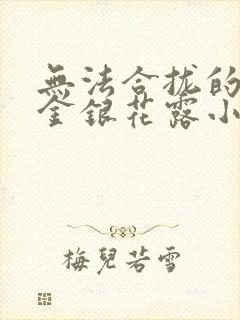 無法合拢的
金銀花露小
梅兒若雪